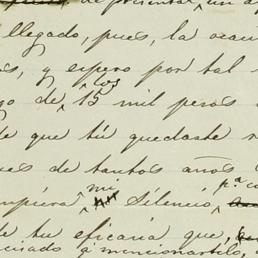 de presentar un a
llegado, pues, la ocas
s, y espero por tal
go de los 15 mil pesos
de que tú quedaste
es de tantos años
mpiera mi silencio, p.a
de tu eficacia que,
ciado q. mencionartelo,